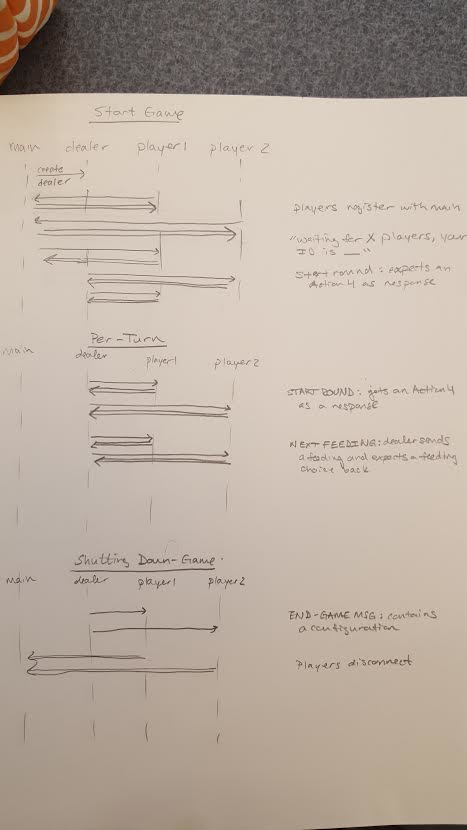 Start Game
main dealer player1 player 2
create
dealer
players register with main
"waiting for X players, your
ID is __"
Start round: expects an
Action4 as response
Per-Turn
main dealer player1 player2
START ROUND: gets an Action4
as a response
NEXT FEEDING: dealer sends
a feeding and expects a feeding
choice back
Shutting Down-Game
main dealer player1 player2
END-GAME MSG: contains
a configuration
Players disconnect